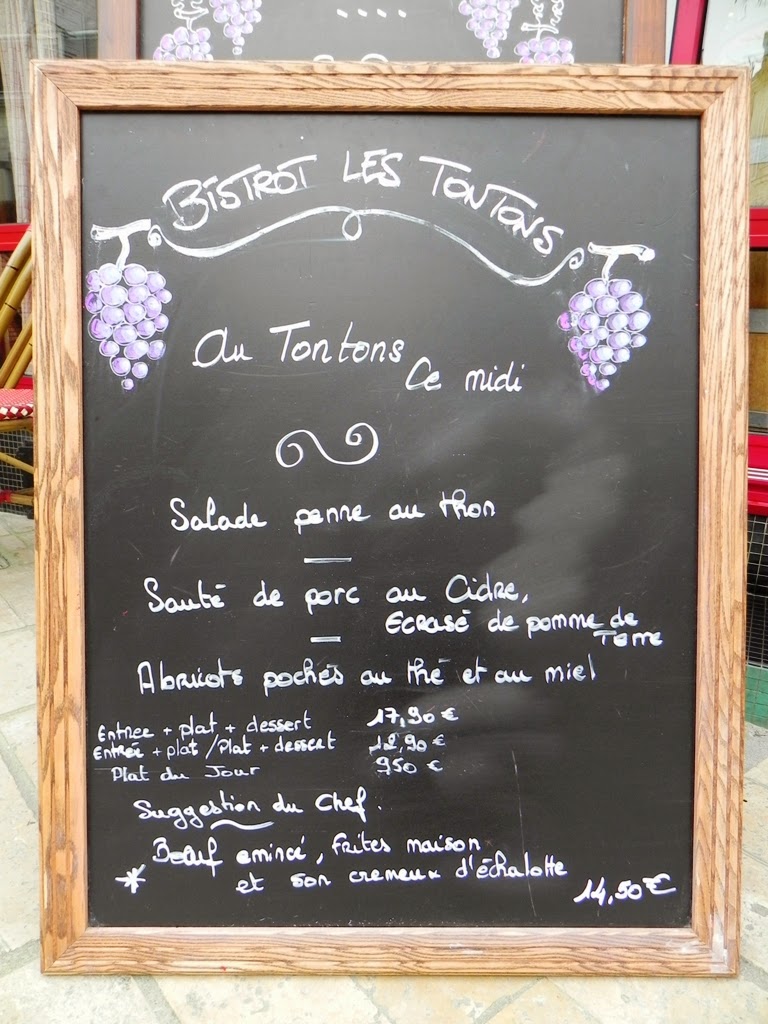 BISTROT LES TONTONS
Au Tontons
Ce midi
Salade penne au thon
Sauté de porc au Cidre,
Ecrasé de pomme de
Terre
Abricots pochés au thé et au miel
Entree + plat + dessert 17,90 €
Entrée + plat / Plat + dessert 12,90 €
Plat du Jour 950 €
Suggestion du Chef.
Bœuf emincé, frites maison
* et son cremeux d'échalotte
14,50 €